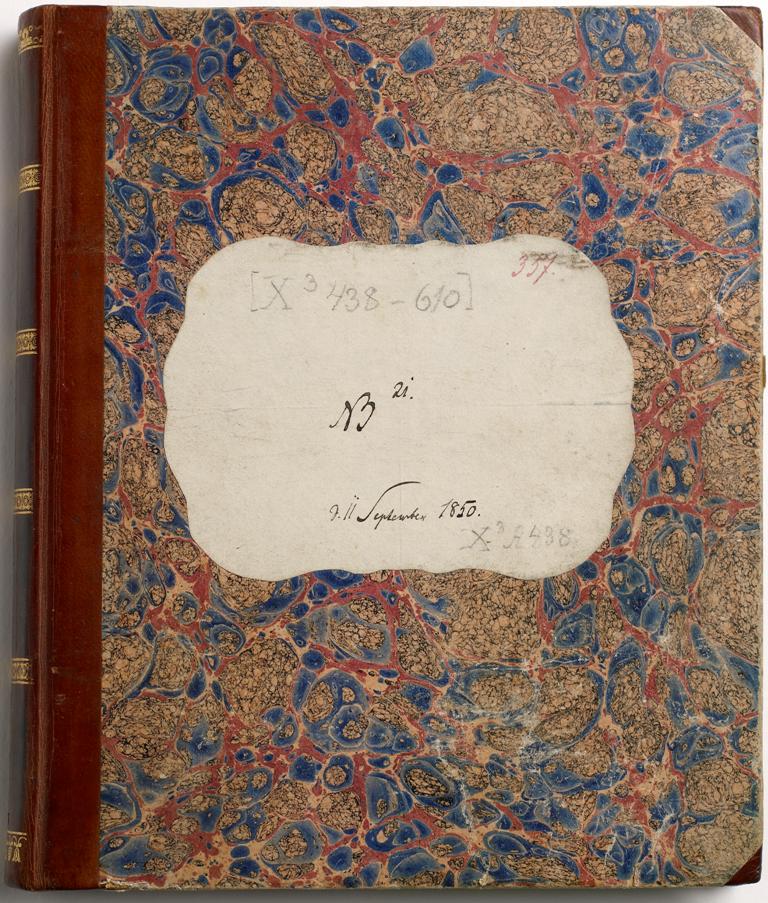 [X³ 438 – 610]
337.
NB 21.
d. 11 September 1850.
X³ A 438